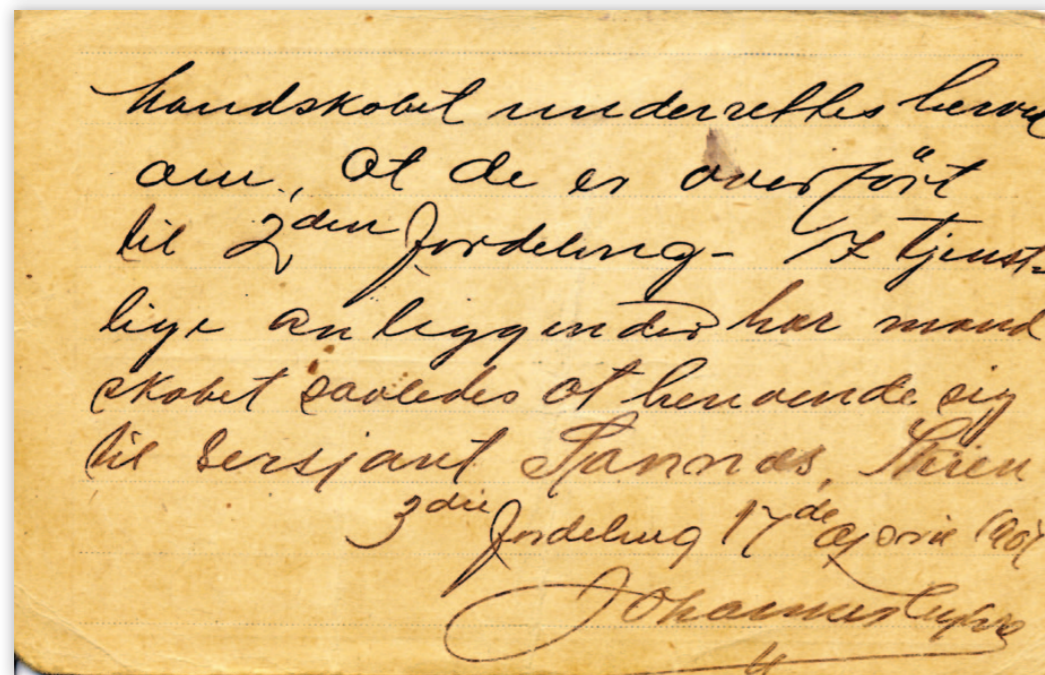 Mandskabet underrettes herved
om, at de er overført
til 2den fordeling - I tjenst=
lige anliggender har mand
skabet saaledes at henvende sig
til sersjant Spannæs, Skien
3die fordeling 17de april
Johannes